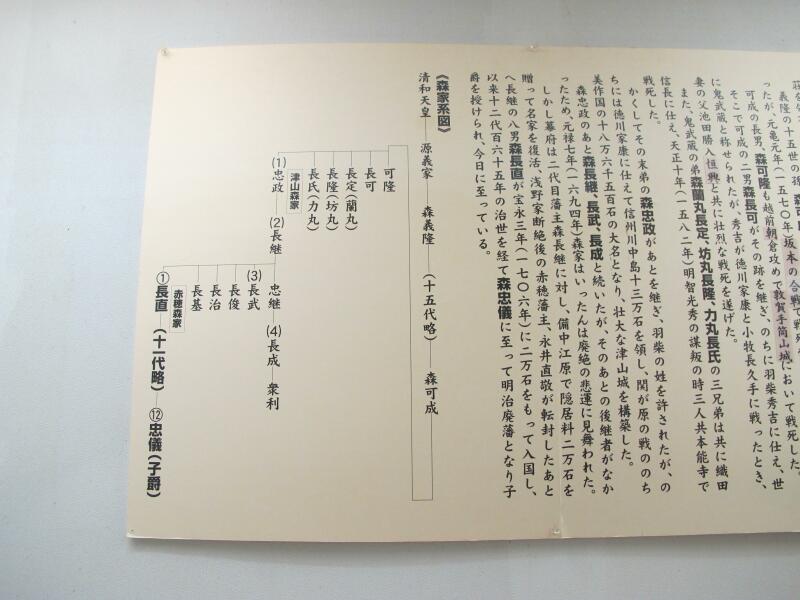 義隆の十五世の孫、森可
ったが、元亀元年（一五七〇年）坂本の合戦で戦死
可成の長男、森可隆も越前朝倉攻めで敦賀手筒山城において戦死した。
そこで可成の二男森長可がその跡を継ぎ、のちに羽柴秀吉に仕え、世
に鬼武蔵と称せられたが、秀吉が徳川家康と小牧長久手に戦ったとき、
妻の父池田勝入恒興と共に壮烈な戦死を遂げた。
また、鬼武蔵の弟森蘭丸長定、坊丸長隆、力丸長氏の三兄弟は共に織田
信長に仕え、天正十年（一五八二年）明智光秀の謀叛の時三人共本能寺で
戦死した。
かくしてその末弟の森忠政があとを継ぎ、羽柴の姓を許されたが、の
ちには徳川家康に仕えて信州川中島十三万石を領し、関が原の戦ののち
美作国の十八万六千五百石の大名となり、壮大な津山城を構築した。
森忠政のあと森長継、長武、長成と続いたが、そのあとの後継者がなか
ったため、元禄七年（一六九四年）森家はいったんは廃絶の悲運に見舞われた。
しかし幕府は二代目藩主森長継に対し、備中江原で隠居料二万石を
贈って名家を復活、浅野家断絶後の赤穂藩主、永井直敬が転封したあと
へ長継の八男森長直が宝永三年（一七〇六年）に二万石をもって入国し、
以来十二代百六十五年の治世を経て森忠儀に至って明治廃藩となり子
爵を授けられ、今日に至っている。
《森家系図》
清和天皇 源義家 森義隆 （十五代略） 森可成
可隆
長可
長定（蘭丸）
長隆（坊丸）
長氏（力丸）
津山森家
(1)忠政 (2)長継
忠継 (4)長成 衆利
(3)長武
長俊
長治
長基
赤穂森家
①長直 （十一代略） ⑫忠儀（子爵）